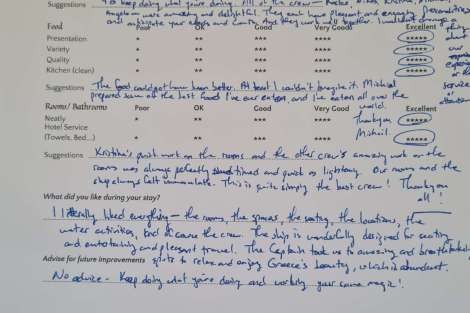 Suggestions To keep doing what you're doing. All of the crew - Kristina,
Angelos were amazing and delightful. They each have pleasant and engaging personalities
and anticipate your needs and wants. And they work well together. I wouldn't change a
Food Poor OK Good Very Good Excellent thing
Presentation * ** *** **** ***** about
Variety * ** *** **** ***** our
Quality * ** *** **** ***** experience
Kitchen (clean) * ** *** **** ***** or the
Suggestions The food could not have been better. At least I couldn't imagine it. Michail service
prepared some of the best food I've ever eaten, and I've eaten all over the or attention
world.
Rooms/ Bathrooms Poor OK Good Very Good Excellent
Neatly * ** *** Thank you *****
Hotel Service Michail.
(Towels, Bed...) * ** *** **** *****
Suggestions Kristina's quiet work on the rooms and the other crew's amazing work on the
rooms was always perfectly timed and quick as lightning. Our rooms and the
ship always felt immaculate. This is quite simply the best crew! Thank you
all!
What did you like during your stay?
I literally liked everything - the rooms, the spaces, the seating, the locations, the
water activities, and of course the crew. The ship is wonderfully designed for exciting
and entertaining and pleasant travel. The Captain took us to amazing and breathtaking
Advise for future improvements spots to relax and enjoy Greece's beauty, which is abundant.
No advice - keep doing what you're doing and working your same magic!